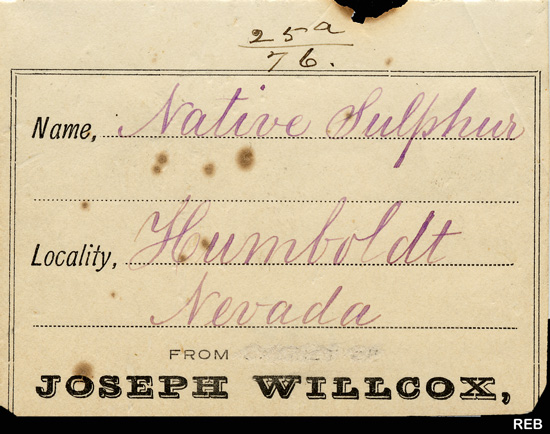 25a
76.
Name, Native Sulphur
Locality, Humboldt
Nevada
FROM
JOSEPH WILLCOX,
REB